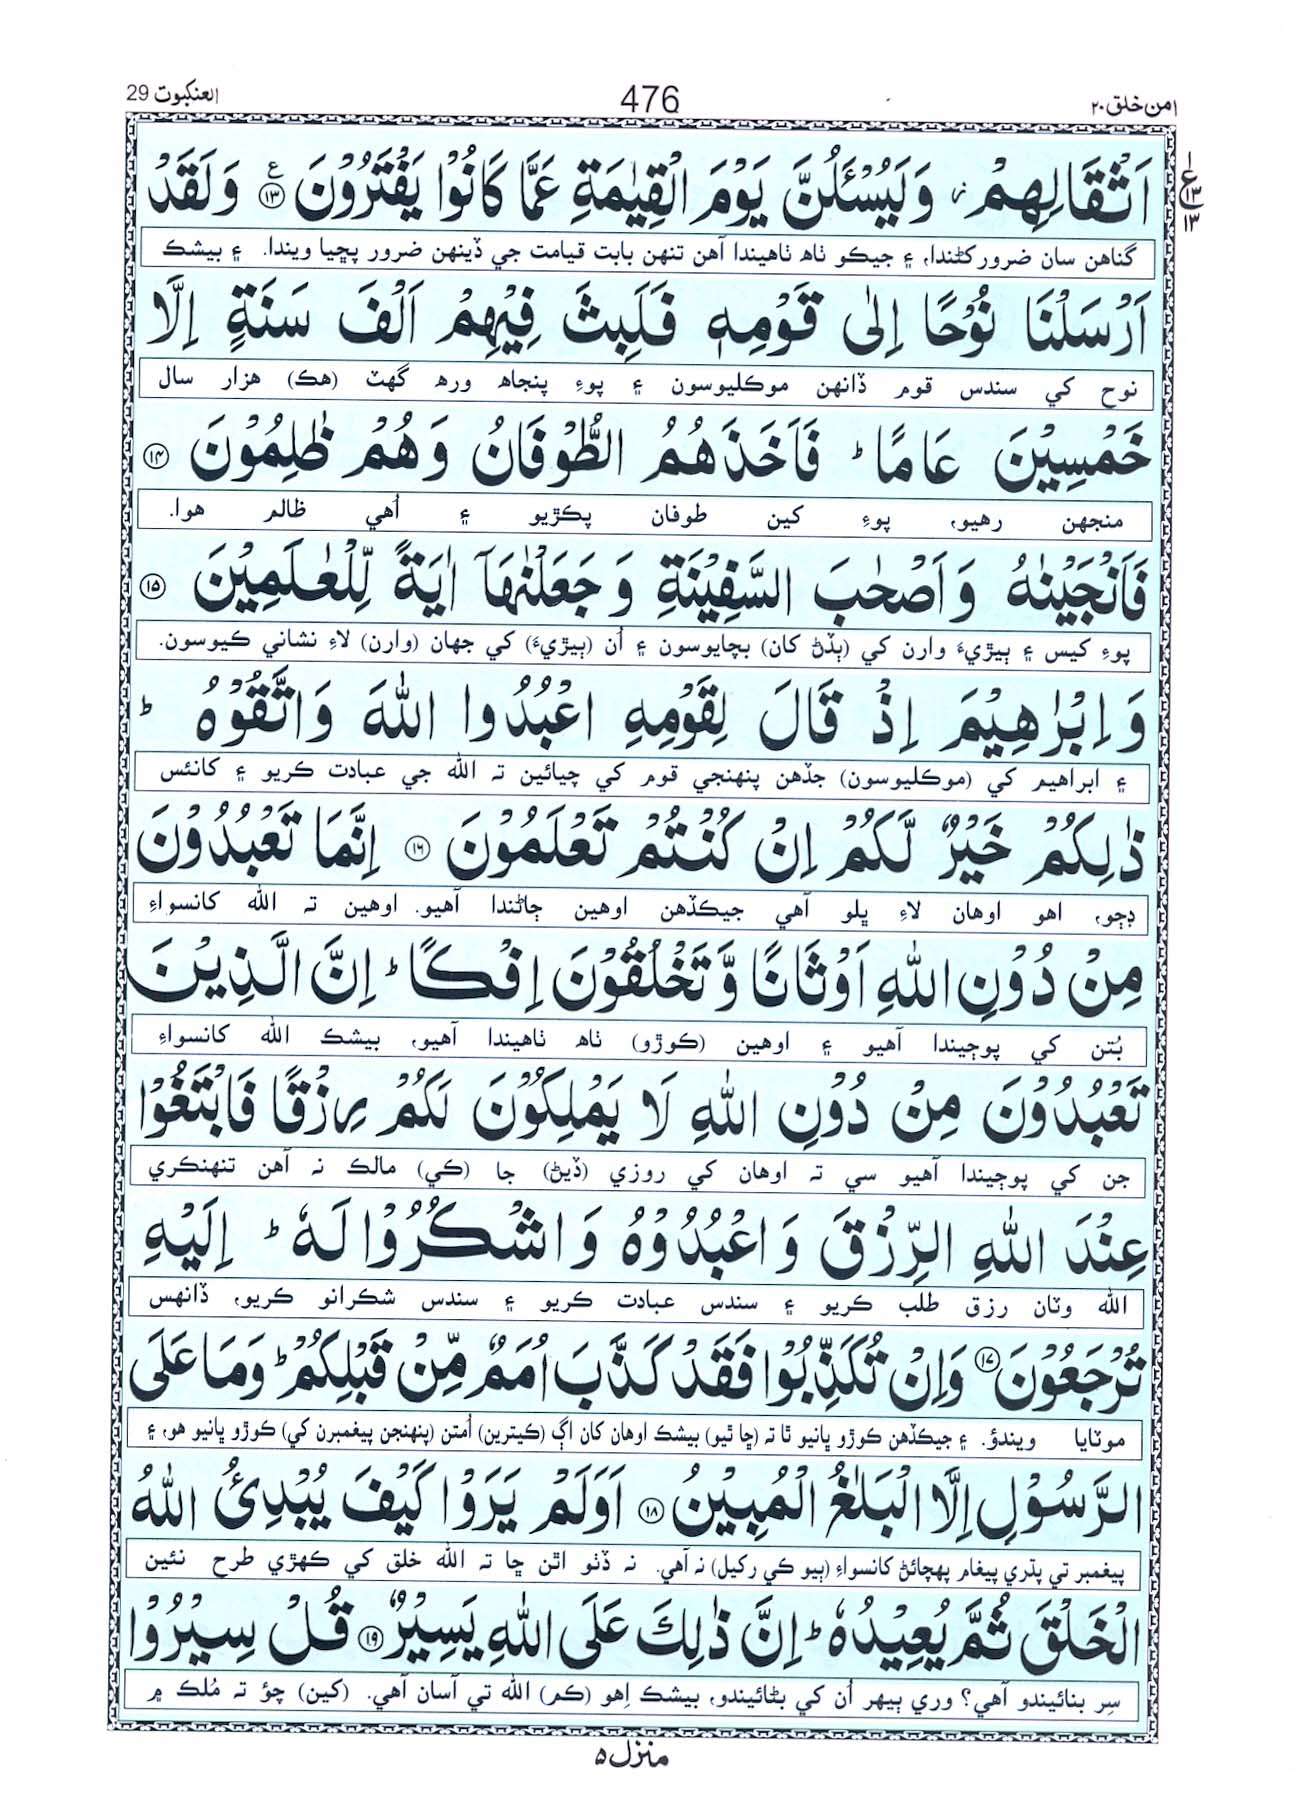 امن خلق ٢٠
476
العنكبوت 29
اَثْقَالِهِمْ ز وَلَيُسْـَٔلُنَّ يَوْمَ الْقِيٰمَةِ عَمَّا كَانُوْا يَفْتَرُوْنَ ع ١٣ وَلَقَدْ
ع ١٣ ١٣
گناهن سان ضرور کڻندا، ۽ جيڪو ٺاھ ٺاهيندا آهن تنهن بابت قيامت جي ڏينهن ضرور پڇيا ويندا. ۽ بيشڪ
اَرْسَلْنَا نُوْحًا اِلٰى قَوْمِهٖ فَلَبِثَ فِيْهِمْ اَلْفَ سَنَةٍ اِلَّا
نوح کي سندس قوم ڏانهن موڪليوسون ۽ پوءِ پنجاھ ورھ گهٽ (هڪ) هزار سال
خَمْسِيْنَ عَامًا ط فَاَخَذَهُمُ الطُّوْفَانُ وَهُمْ ظٰلِمُوْنَ ١٤
منجهن رهيو، پوءِ کين طوفان پڪڙيو ۽ اُهي ظالم هوا.
فَاَنْجَيْنٰهُ وَاَصْحٰبَ السَّفِيْنَةِ وَجَعَلْنٰهَآ اٰيَةً لِّلْعٰلَمِيْنَ ١٥
پوءِ کيس ۽ ٻيڙيءَ وارن کي (ٻڏڻ کان) بچايوسون ۽ اُن (ٻيڙيءَ) کي جهان (وارن) لاءِ نشاني ڪيوسون.
وَاِبْرٰهِيْمَ اِذْ قَالَ لِقَوْمِهِ اعْبُدُوا اللّٰهَ وَاتَّقُوْهُ ط
۽ ابراهيم کي (موڪليوسون) جڏهن پنهنجي قوم کي چيائين ته الله جي عبادت ڪريو ۽ کانئس
ذٰلِكُمْ خَيْرٌ لَّكُمْ اِنْ كُنْتُمْ تَعْلَمُوْنَ ١٦ اِنَّمَا تَعْبُدُوْنَ
ڊڄو، اهو اوهان لاءِ ڀلو آهي جيڪڏهن اوهين ڄاڻندا آهيو. اوهين ته الله کانسواءِ
مِنْ دُوْنِ اللّٰهِ اَوْثَانًا وَّتَخْلُقُوْنَ اِفْكًا ط اِنَّ الَّذِيْنَ
بُتن کي پوڄيندا آهيو ۽ اوهين (ڪوڙو) ٺاھ ٺاهيندا آهيو، بيشڪ الله کانسواءِ
تَعْبُدُوْنَ مِنْ دُوْنِ اللّٰهِ لَا يَمْلِكُوْنَ لَكُمْ رِزْقًا فَابْتَغُوْا
جن کي پوڄيندا آهيو سي ته اوهان کي روزي (ڏيڻ) جا (ڪي) مالڪ نہ آهن تنهنڪري
عِنْدَ اللّٰهِ الرِّزْقَ وَاعْبُدُوْهُ وَاشْكُرُوْا لَهٗ ط اِلَيْهِ
الله وٽان رزق طلب ڪريو ۽ سندس عبادت ڪريو ۽ سندس شڪرانو ڪريو، ڏانهس
تُرْجَعُوْنَ ١٧ وَاِنْ تُكَذِّبُوْا فَقَدْ كَذَّبَ اُمَمٌ مِّنْ قَبْلِكُمْ ط وَمَا عَلَى
موٽايا ويندؤ. ۽ جيڪڏهن ڪوڙو ڀانيو ٿا ته (ڇا ٿيو) بيشڪ اوهان کان اڳ (ڪيترين) اُمتن (پنهنجن پيغمبرن کي) ڪوڙو ڀانيو هو، ۽
الرَّسُوْلِ اِلَّا الْبَلٰغُ الْمُبِيْنُ ١٨ اَوَلَمْ يَرَوْا كَيْفَ يُبْدِئُ اللّٰهُ
پيغمبر تي پڌري پيغام پهچائڻ کانسواءِ (ٻيو ڪي رکيل) نہ آهي. نہ ڏٺو اٿن ڇا ته الله خلق کي ڪهڙي طرح نئين
الْخَلْقَ ثُمَّ يُعِيْدُهٗ ط اِنَّ ذٰلِكَ عَلَى اللّٰهِ يَسِيْرٌ ١٩ قُلْ سِيْرُوْا
سِر بنائيندو آهي؟ وري ٻيهر اُن کي بڻائيندو، بيشڪ اِهو (ڪم) الله تي آسان آهي. (کين) چؤ ته مُلڪ ۾
منزل ٥